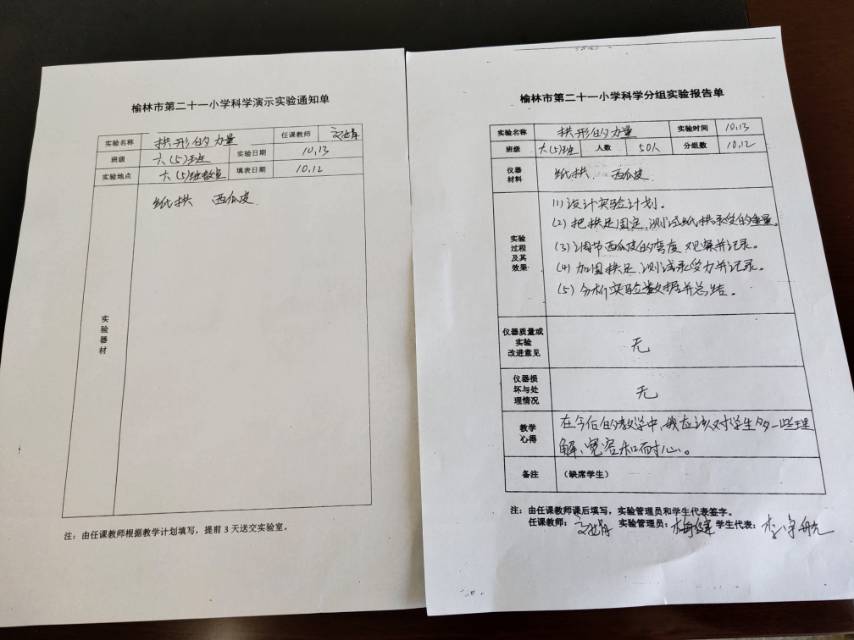 榆林市第二十一小学科学演示实验通知单
实验名称 拱形的力量 任课教师
班级 六(5)班 实验日期 10.13
实验地点 六(5)班教室 填表日期 10.12
实验器材
纸拱 西瓜皮
注：由任课教师根据教学计划填写，提前 3 天送交实验室。
榆林市第二十一小学科学分组实验报告单
实验名称 拱形的力量 实验时间 10.13
班级 六(5)班 人数 50人 分组数 10.12
仪器材料 纸拱、西瓜皮
实验过程及其效果
(1) 设计实验计划。
(2) 把拱足固定,测试纸拱承受的重量。
(3) 调节西瓜皮的弯度,观察并记录。
(4) 加固拱足,测试承受力并记录。
(5) 分析实验数据并总结。
仪器质量或实验改进意见 无
仪器损坏与处理情况 无
教学心得 在今后的教学中,我应该对学生多一些理
解、宽容和耐心。
备注 (缺席学生)
注：由任课教师课后填写，实验管理员和学生代表签字。
任课教师： 实验管理员： 学生代表：